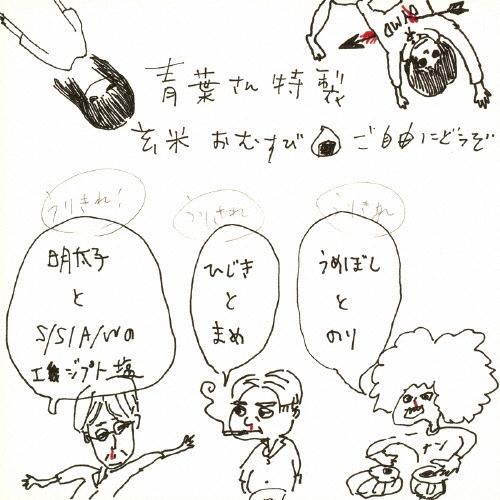 青葉さん特製
玄米おむすび ご自由にどうぞ
うりきれ!
うりきれ
うりきれ
明太子
と
S/S/A/Wの
エジプト塩
ひじき
と
まめ
うめぼし
と
のり